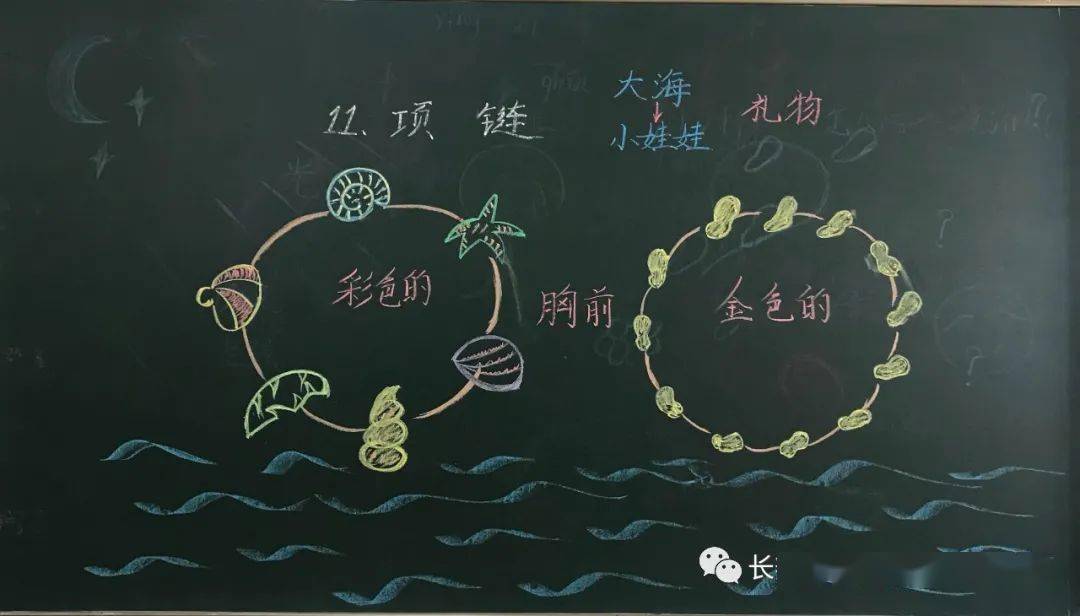 11、项 链
大海
↓
小娃娃
礼物
彩色的
胸前
金色的
长